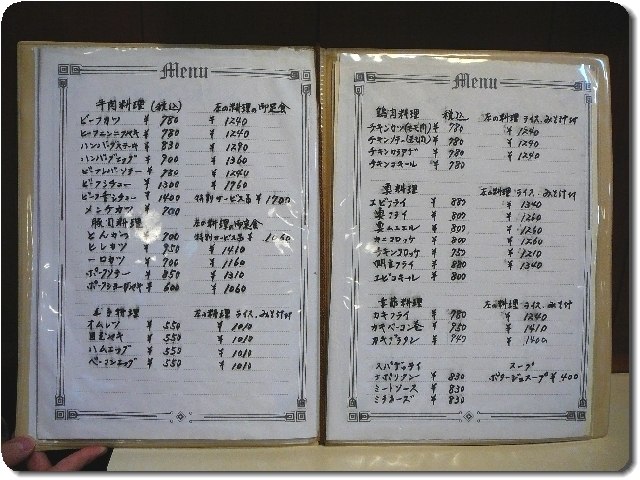 Menu
牛肉料理 (税込) 左の料理の御定食
ビーフカツ ¥ 780 ¥ 1240
¥ 780 ¥ 1240
ハンバーグステーキ ¥ 830 ¥ 1290
ハンバーグエッグ ¥ 900 ¥ 1360
¥ 780 ¥ 1240
ビーフシチュー ¥ 1300 ¥ 1760
¥ 1400 特別サービス品 ¥ 1700
メンチカツ ¥ 700
豚肉料理 左の料理の御定食
とんかつ ¥ 700 特別サービス品 ¥ 1060
ヒレカツ ¥ 950 ¥ 1410
一口カツ ¥ 700 ¥ 1160
ポークソテー ¥ 850 ¥ 1310
ポークショーガヤキ ¥ 600 ¥ 1060
玉子料理 左の料理 ライス、みそ汁付
オムレツ ¥ 550 ¥ 1010
目玉ヤキ ¥ 550 ¥ 1010
ハムエッグ ¥ 550 ¥ 1010
ベーコンエッグ ¥ 550 ¥ 1010
Menu
鶏肉料理 税込 左の料理 ライス、みそ汁付
チキンカツ ¥ 780 ¥ 1240
チキンソテー ¥ 780 ¥ 1240
チキンカラアゲ ¥ 780 ¥ 1240
¥ 780
料理 左の料理 ライス、みそ汁付
エビフライ ¥ 880 ¥ 1340
フライ ¥ 800 ¥ 1260
ムニエル ¥ 800 ¥ 1260
カニコロッケ ¥ 800 ¥ 1260
チキンコロッケ ¥ 750 ¥ 1210
フライ ¥ 880 ¥ 1340
¥ 800
季節料理 左の料理 ライス、みそ汁付
カキフライ ¥ 780 ¥ 1240
カキベーコン巻 ¥ 950 ¥ 1410
カキグラタン ¥ 940 ¥ 1400
スパゲッティ スープ
ナポリタン ¥ 830 ポタージュスープ ¥ 400
ミートソース ¥ 830
ミラネーズ ¥ 830